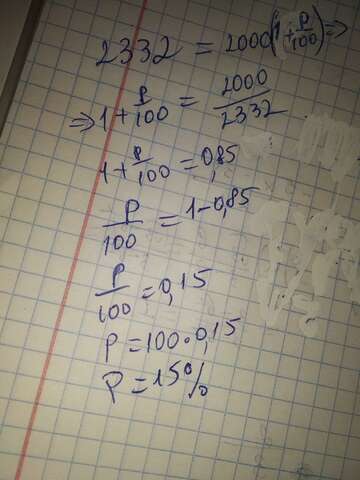 2332 = 2000(1+P/100) =>
=> 1+P/100 = 2000/2332
1+P/100 = 0,85
P/100 = 1-0,85
P/100 = 0,15
P = 100·0,15
P = 15%